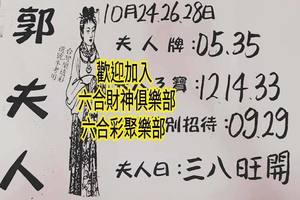 郭夫人
10月24.26.28日
夫人牌:05.35
歡迎加入
寶:12.14.33
六合財神俱樂部
六合彩聚樂部
別招待:09.29
夫人日:三八旺開